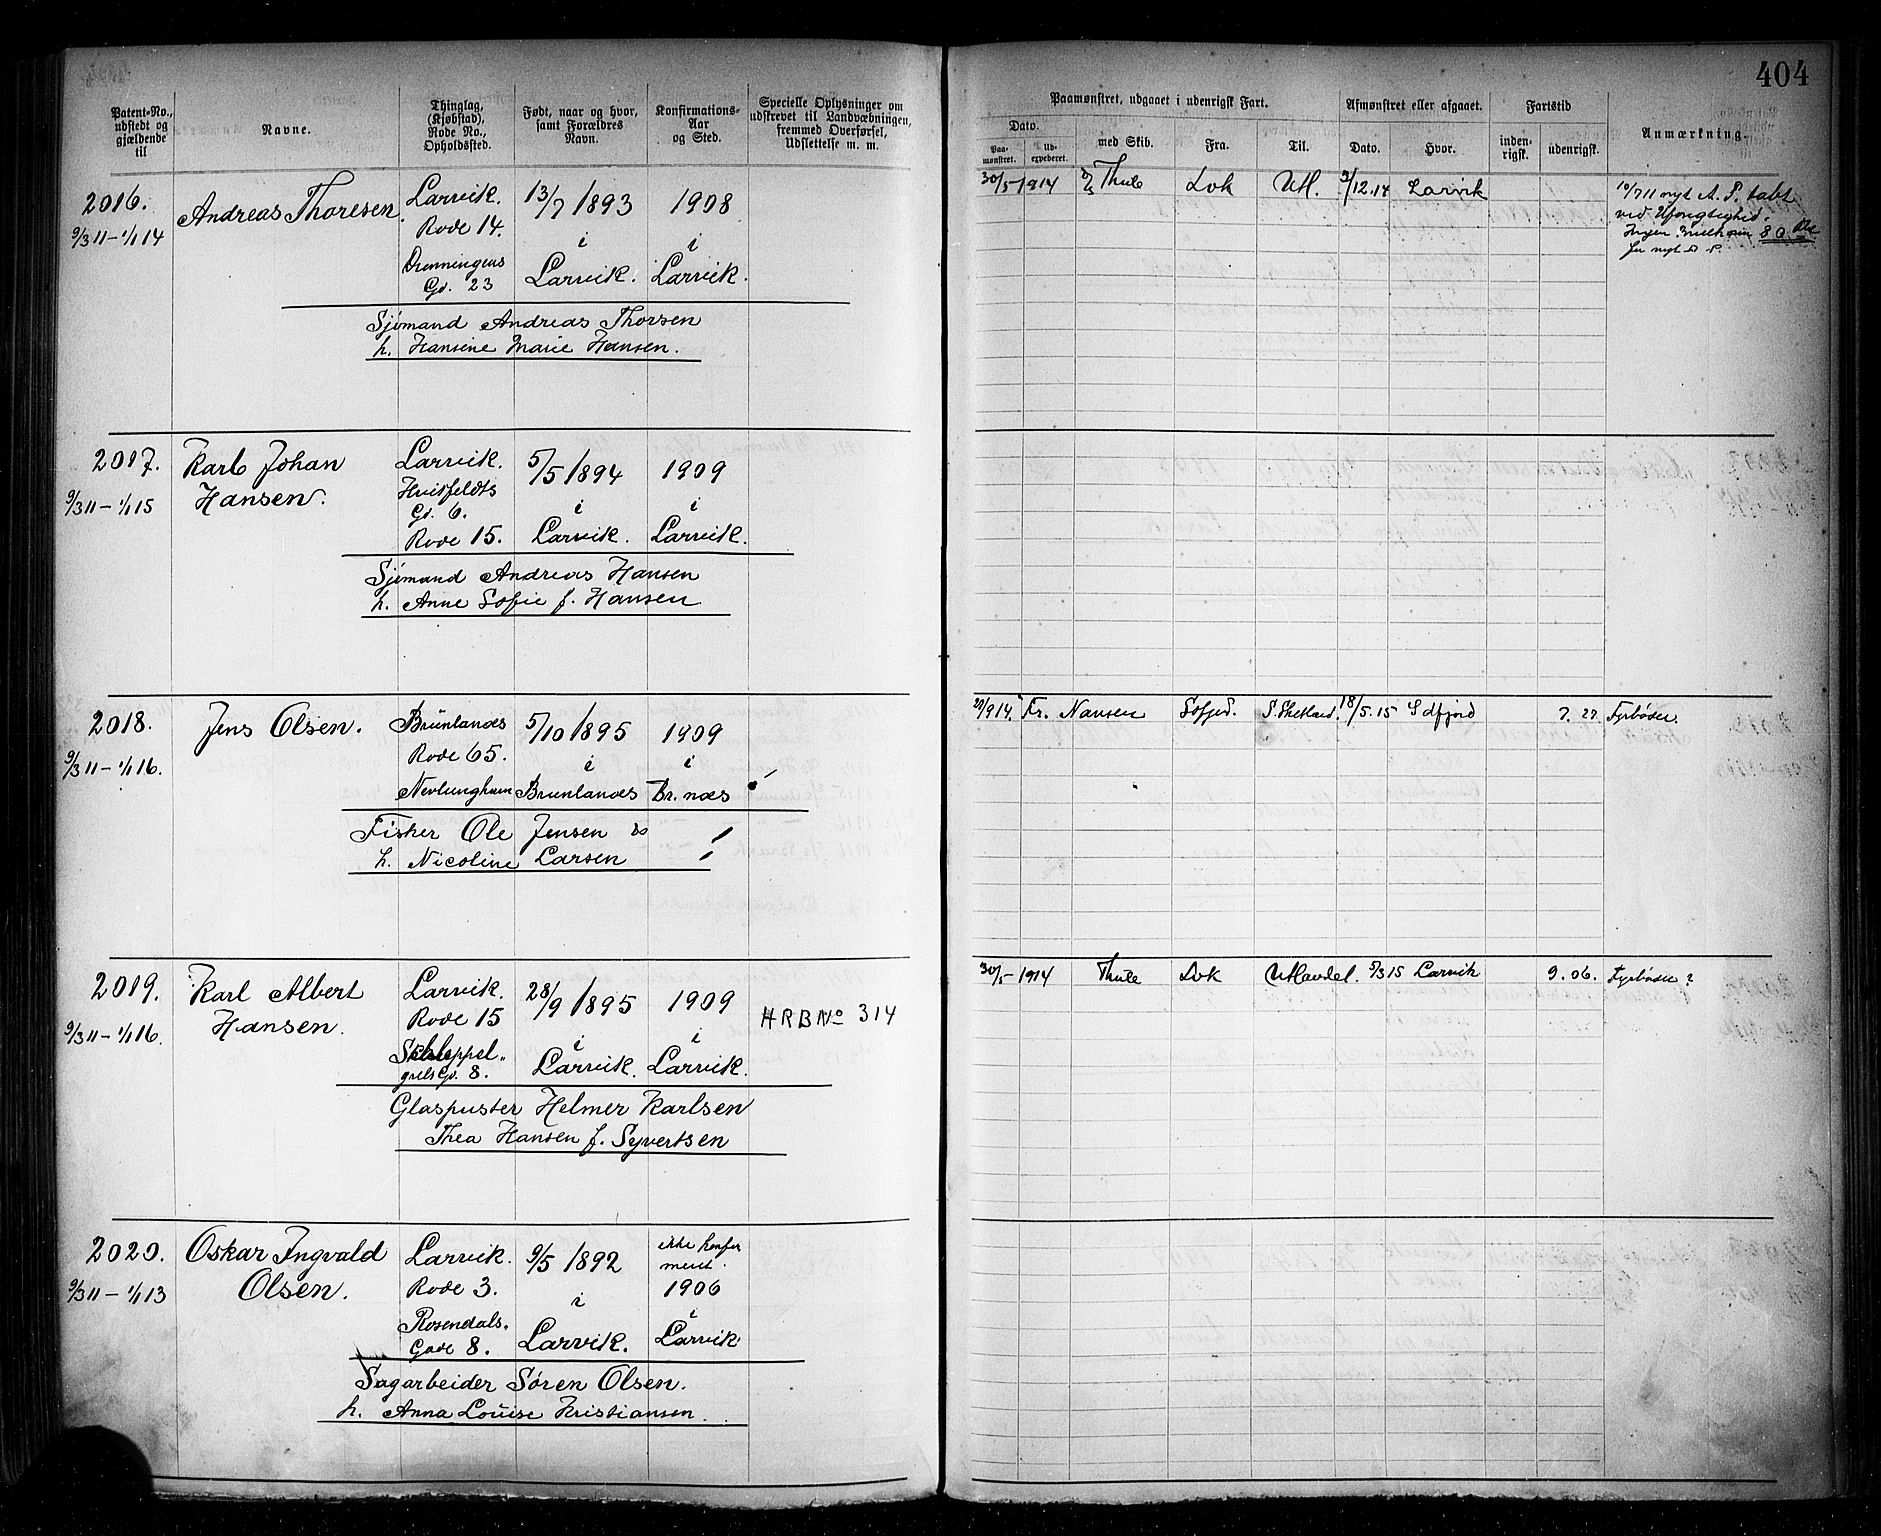 404
Patent-No., udstedt og gjældende til
Navne.
Thinglag, (Kjøbstad), Rode No., Opholdssted.
Født, naar og hvor, samt Forældres Navn.
Konfirmations-Aar og Sted.
Specielle Oplysninger om udskrevet til Landvæbningen, fremmed Overførsel, Udslettelse m. m.
Paamønstret, udgaaet i udenrigsk Fart.
Dato.
Paa-mønstret.
Ud-expederet.
med Skib.
Fra.
Til.
Afmønstret eller afgaaet.
Dato.
Hvor.
Fartstid
inden-rigsk.
udenrigsk.
Anmærkning.
2016.
9/3 11 – 1/1 14
Andreas Thoresen
Larvik.
Rode 14.
Dronningens
Gd. 23
13/7 1893
i
Larvik.
1908
i
Larvik.
Sjømand Andreas Thorsen
h. Hansine Marie Hansen.
30/5 1914
Thule
Lvk
Utl.
9/12.14
Larvik
10/7 11 nyt A. P. tabt
ved Uforsigtighed.
80 Øre
2017.
9/3 11 – 1/1 15
Karl Johan
Hansen.
Larvik.
Hvitfeldts
Gd. 6.
Rode 15.
5/5 1894
i
Larvik.
1909
i
Larvik.
Sjømand Andreas Hansen
h. Anne Sofie f. Hansen
2018.
9/3 11 – 1/1 16.
Jens Olsen.
Brunlanæs
Rode 65.
Nevlunghavn
5/10 1895
i
Brunlanæs
1909
i
Br.næs
Fisker Ole Jensen &
h. Nicoline Larsen
22/9 14.
Fr. Nansen
Sdfjd.
S. Shetland.
18/5.15
Sdfjord
7. 27.
Fyrbøder.
2019.
9/3 11 – 1/1 16.
Karl Albert
Hansen.
Larvik.
Rode 15
Skeppel-
grels Gd. 8.
28/9 1895
i
Larvik.
1909
i
Larvik.
HRB No 314
Glaspuster Helmer Karlsen
Thea Hansen f. Syvertsen
30/5 1914
Thule
Lvk
Utlandet.
5/3 15
Larvik
9. 06.
Fyrbøder
2020.
9/3 11 – 1/1 13
Oskar Ingvald
Olsen.
Larvik.
Rode 3.
Rosendals.
Gade 8.
9/5 1892
i
Larvik.
ikke konfir
meret.
1906
i
Larvik
Sagarbeider Søren Olsen.
h. Anna Louise Kristiansen.